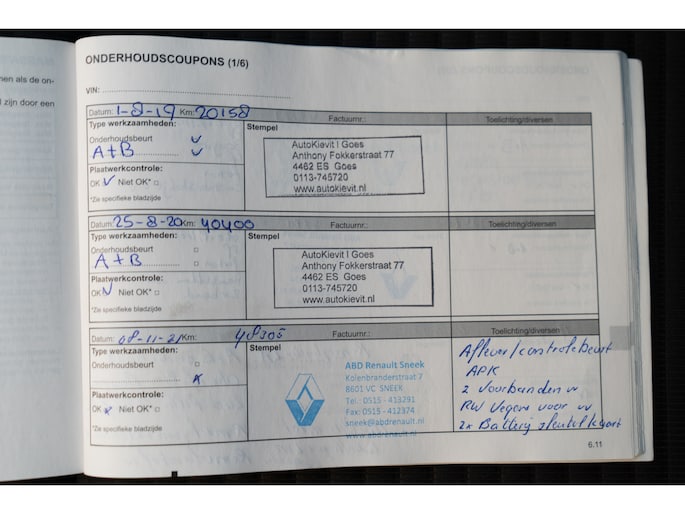 nen als de on-
l zijn door een
ONDERHOUDSCOUPONS (1/6)
VIN:
Datum: 1-8-19 Km: 20158 Factuurnr.: Toelichting/diversen
Type werkzaamheden: Stempel
Onderhoudsbeurt
A+B
Plaatwerkcontrole:
OK Niet OK*
*Zie specifieke bladzijde
AutoKievit I Goes
Anthony Fokkerstraat 77
4462 ES Goes
0113-745720
www.autokievit.nl
Datum: 25-8-20 Km: 40400 Factuurnr.: Toelichting/diversen
Type werkzaamheden: Stempel
Onderhoudsbeurt
A+B
Plaatwerkcontrole:
OK Niet OK*
*Zie specifieke bladzijde
AutoKievit I Goes
Anthony Fokkerstraat 77
4462 ES Goes
0113-745720
www.autokievit.nl
Datum: 08-11-21 Km: 48305 Factuurnr.: Toelichting/diversen
Type werkzaamheden: Stempel
Onderhoudsbeurt
Plaatwerkcontrole:
OK Niet OK*
*Zie specifieke bladzijde
ABD Renault Sneek
Kolenbranderstraat 7
8601 VC SNEEK
Tel.: 0515 - 413291
Fax: 0515 - 412374
sneek@abdrenault.nl
www.abdrenault.nl
Aflever/controlebeurt
APK
2 Voorbanden
RW Vegers voor
2x Batterij sleutelkaart
6.11